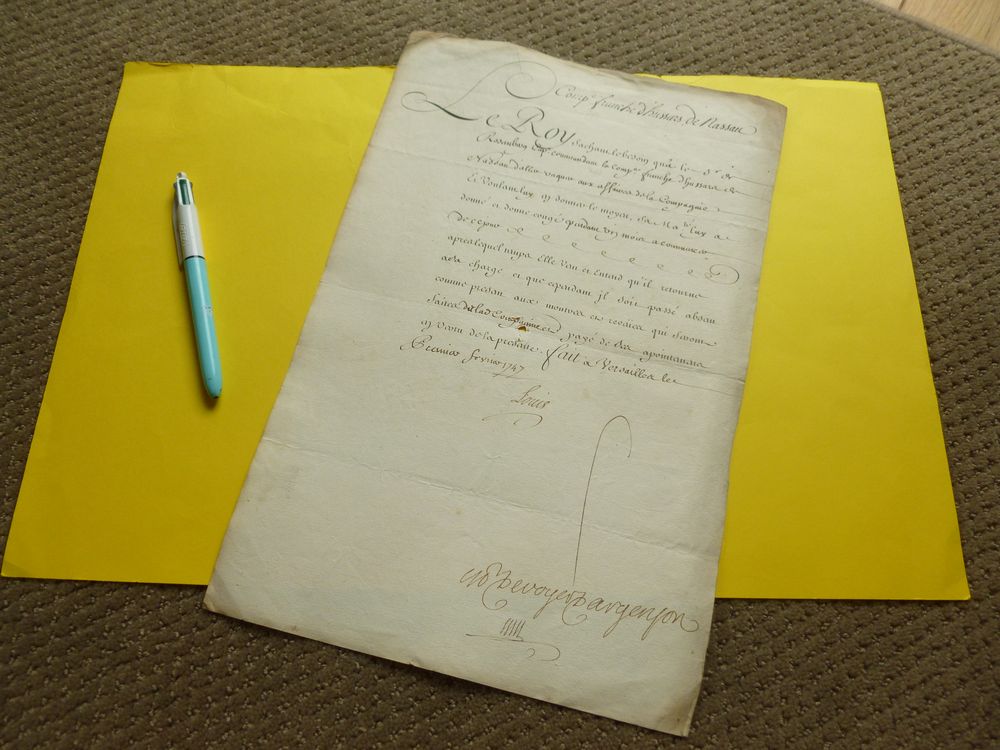 Comp.e franche d'husars de Nassau
Le Roy sachant le besoin qu'a le S.r de
Rosenberg Cap.ne commandant la comp.e franche d'hussars de
Nassau d'aller vaquer aux affaires de la Compagnie
Et Voulant luy en donner le moyen, Sa Ma.té luy a
donné et donne congé pendant un mois a commencer
de ce jour
apres lequel temps Elle veu et Entend qu'il retourne
a sa charge et que cependant il soit passé absen
comme presen aux montres et reveües qui seront
faites de lad. Compagnie et payé de ses apointemens
en vertu de la presente. fait a Versailles le
Premier fevrier 1747
Louis
M P De voyer D'argenson